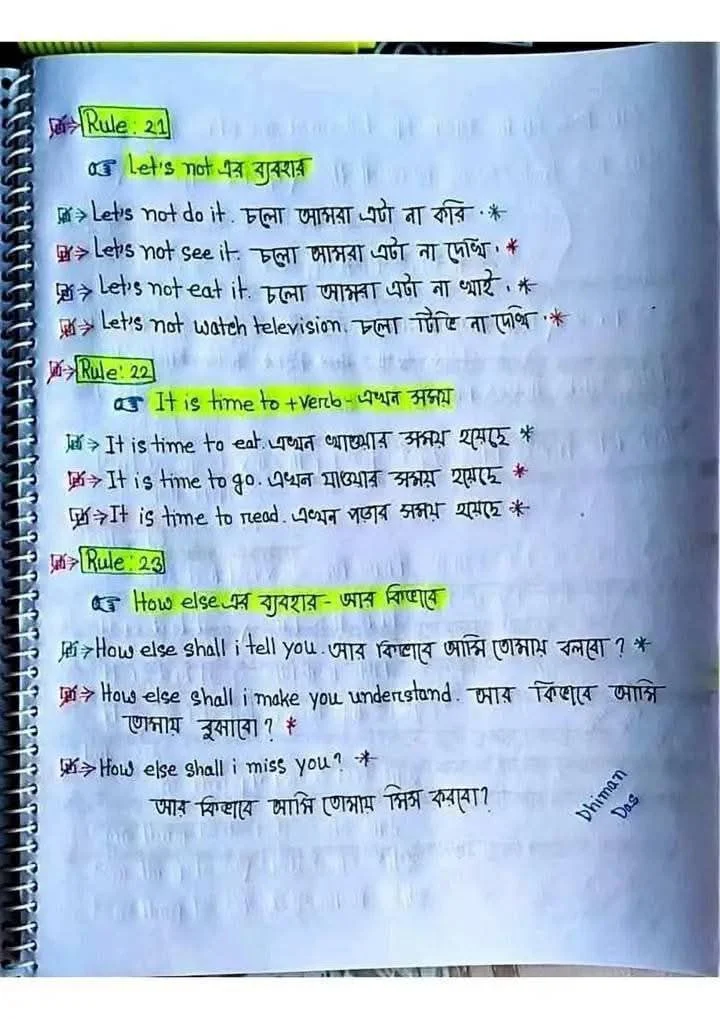 Rule: 21
Let's not এর ব্যবহার
Let's not do it. চলো আমরা এটা না করি. *
Let's not see it. চলো আমরা এটা না দেখি. *
Let's not eat it. চলো আমরা এটা না খাই. *
Let's not watch television. চলো টিভি না দেখি. *
Rule: 22
It is time to + verb - এখন সময়
It is time to eat. এখন খাওয়ার সময় হয়েছে *
It is time to go. এখন যাওয়ার সময় হয়েছে *
It is time to read. এখন পড়ার সময় হয়েছে *
Rule: 23
How else এর ব্যবহার - আর কিভাবে
How else shall i tell you. আর কিভাবে আমি তোমায় বলবো? *
How else shall i make you understand. আর কিভাবে আমি
তোমায় বুঝাবো? *
How else shall i miss you? *
আর কিভাবে আমি তোমায় মিস করবো?
Dhiman
Das